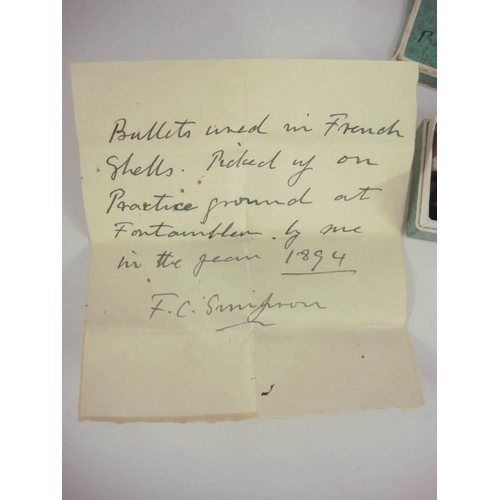 Bullets used in French
Shells. Picked up on
Practice ground at
Fontainbleu. by me
in the year 1894
F.C. Simpson